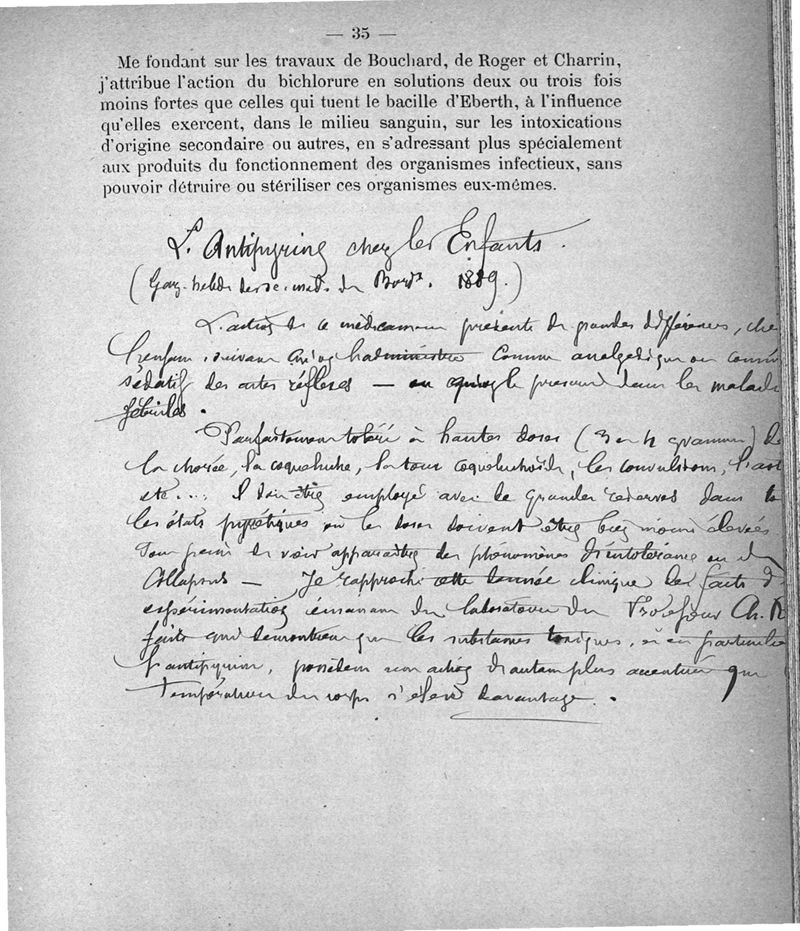 — 35 —
Me fondant sur les travaux de Bouchard, de Roger et Charrin,
j'attribue l'action du bichlorure en solutions deux ou trois fois
moins fortes que celles qui tuent le bacille d'Eberth, à l'influence
qu'elles exercent, dans le milieu sanguin, sur les intoxications
d'origine secondaire ou autres, en s'adressant plus spécialement
aux produits du fonctionnement des organismes infectieux, sans
pouvoir détruire ou stériliser ces organismes eux-mêmes.
L'Antipyrine chez les Enfants.
(Gaz. hebd. des sc. méd. de Bordx. 1889.)
L'action de ce médicament présente de grandes différences, che
l'enfant, suivant qu'on l'administre comme analgésique ou comme
sédatif des actes réflexes — ou qu'on le prescrit dans les malad
fébriles.
Parfaitement toléré à hautes doses (3 et 4 grammes) da
la chorée, la coqueluche, la toux coqueluchoïde, les convulsions, l'ast
etc... il doit être employé avec de grandes réserves dans
les états pyrétiques où les doses doivent être bien moins élevées
sous peine de voir apparaître des phénomènes d'intolérance ou de
Collapsus — Je rapproche cette donnée clinique des faits d'
expérimentation émanant du laboratoire du Professeur Ch. R
faits qui démontrent que les substances toxiques, et en particulier
l'antipyrine, possèdent une action d'autant plus accentuée que
température du corps s'élève davantage.